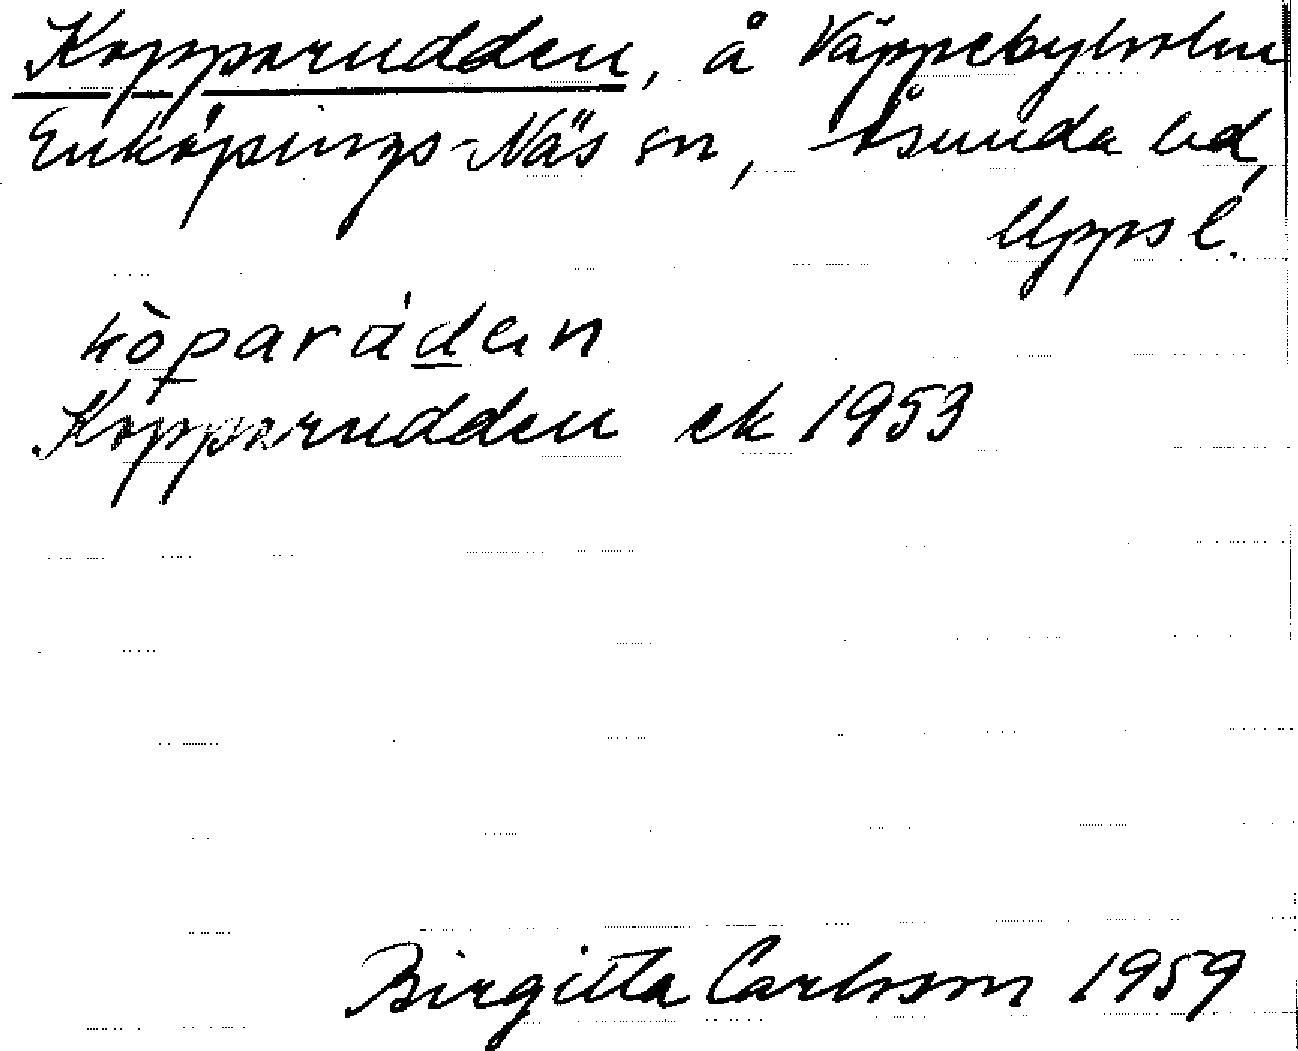 Kopparudden, å Väppebyholm
Enköpings-Näs sn, Åsunda hd,
Upps l.
kòparúdan
Kopparudden ek 1953
Birgitta Carlsson 1959